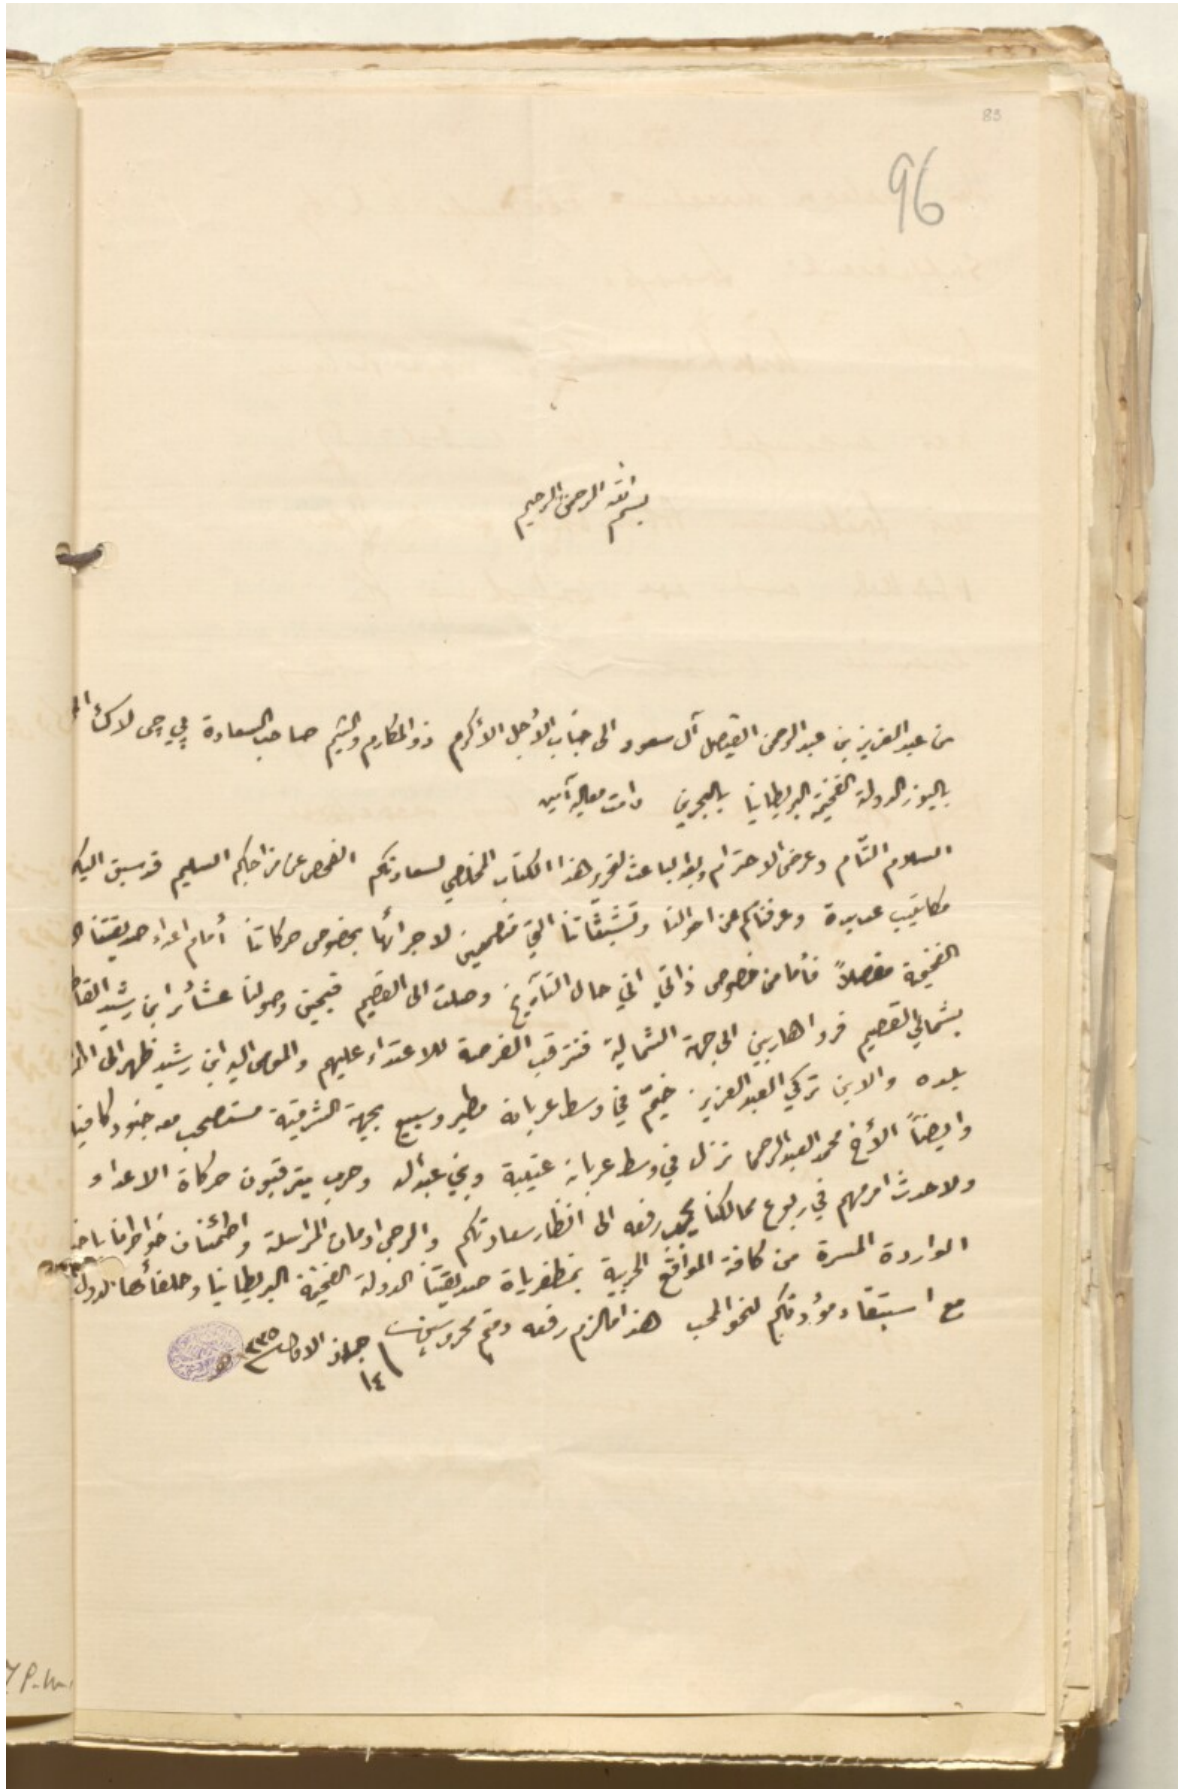 83
96
بسم الله الرحمن الرحيم
من عبد العزيز بن عبد الرحمن الفيصل آل سعود الى جناب الأجل الأكرم ذو المكارم والشيم صاحب السعادة پي جي لاك
باليوز الدولة الفخيمة البريطانيا بالبحرين دامت معاليه آمين
السلام التام وعرض الاحترام وبعد الباعث لتحرير هذا الكتاب المخلصي لسعادتكم الفحص عن مزاجكم السليم قد سبق اليكم
مكاتيب عديدة وعرفناكم عن احوالنا وتشبثاتنا التي متصممين لاجرائها بخصوص حركاتنا أمام اعداء صديقتنا
الفخيمة مفصلاً فأما من خصوص ذاتي اني حال التأريخ وصلت الى القصيم فبحين وصولنا عشائر ابن رشيد
بشمالي القصيم فروا هاربين الى جهة الشمالية فنترقب الفرصة للاعتداء عليهم والمومى اليه ابن رشيد ظهر الى
بلده والابن تركي العبد العزيز خيّم في وسط عربانه مطير وسبيع بجهة الشرقية مستصحب معه جنود كافية
وايضاً الأخ محمد العبد الرحمن نزل في وسط عربانه عتيبة وبني عبد الله وحرب يترقبون حركاة الاعداء
ولا حدث امر مهم في ربوع ممالكنا يجب رفعه الى انظار سعادتكم والرجى ادمان المراسلة واطمئنان خواطرنا
الواردة المسرة من كافة المواقع الحربية بمظفرياة صديقتنا الدولة الفخيمة البريطانيا وحلفائها الدول
مع استبقاء مودتكم لنحو المحب هذا ما لزم رفعه ودمتم محروسين
١٤ جماد الاول ١٣٣٥